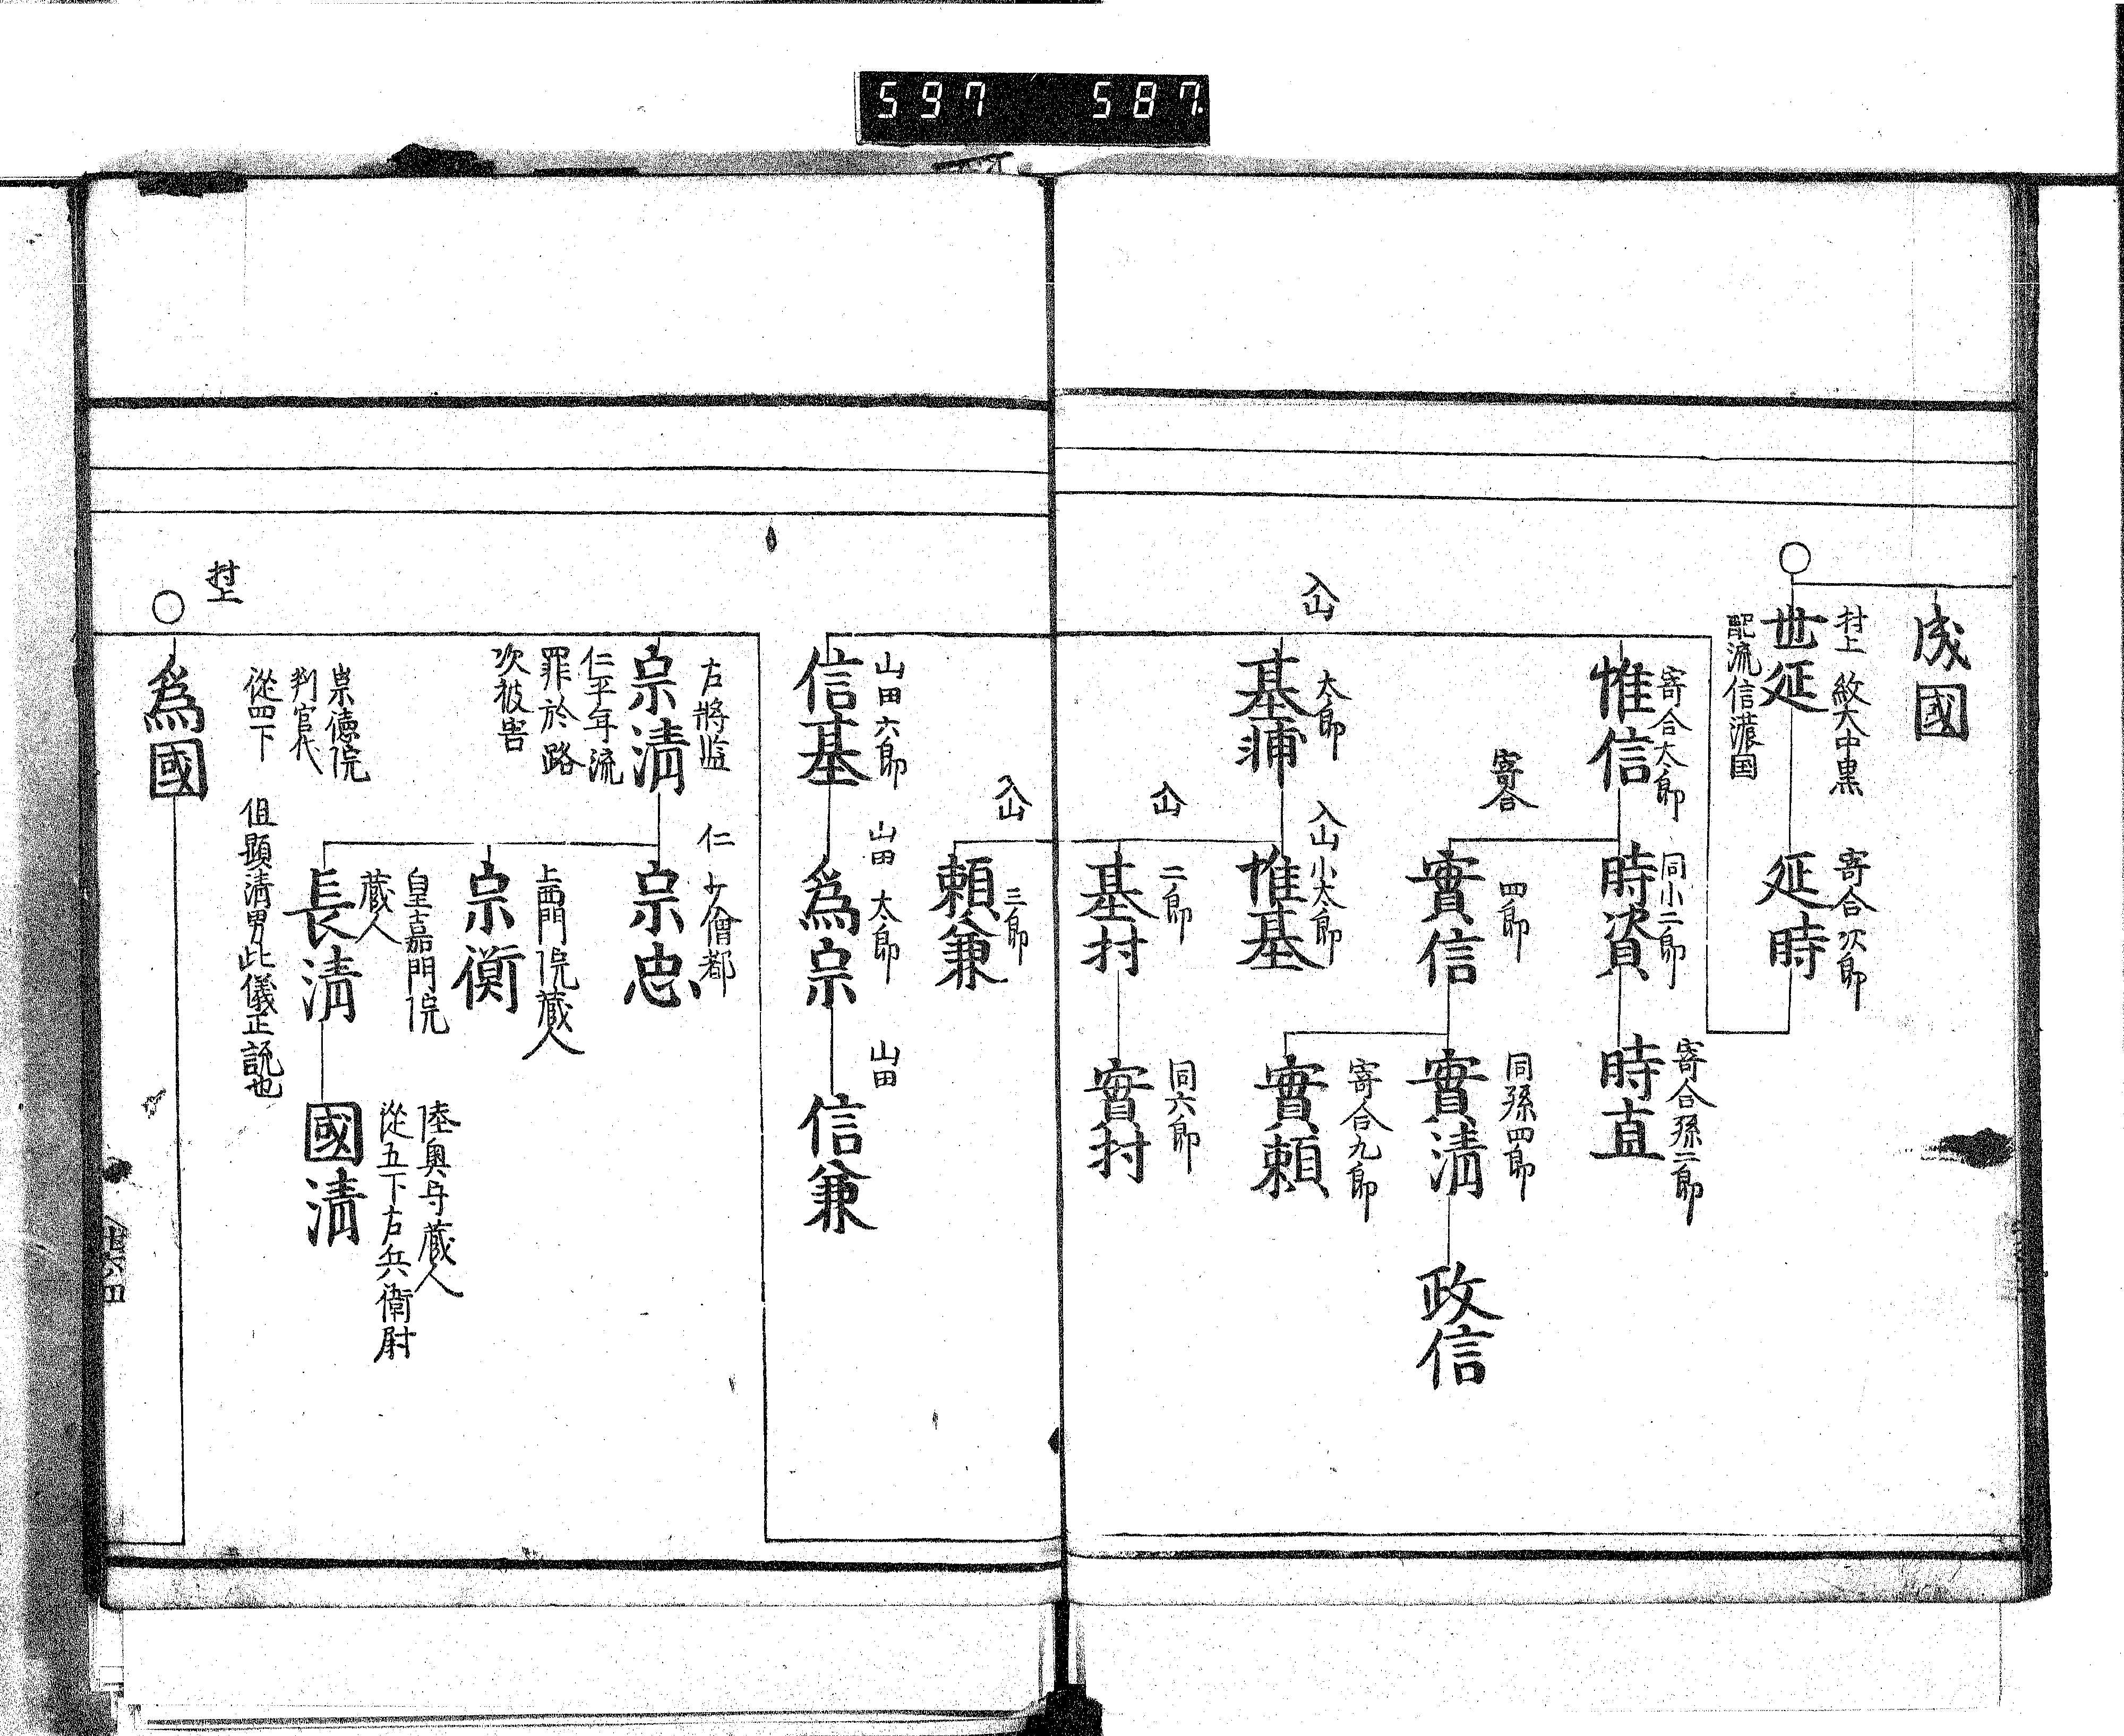 597 587.
成國
村上 紋大中黒
世延
配流信濃国
寄合次郎
延時
寄合太郎
惟信
同小二郎
時資
寄合孫二郎
時直
寄合
四郎
實信
同孫四郎
實清
政信
寄合九郎
實頼
入山
太郎
基
入山小太郎
惟基
入山
二郎
基村
同六郎
實村
入山
三郎
頼兼
山田六郎
信基
山田 太郎
為宗
山田
信兼
右將监
宗清
仁平年流
罪於路
次被害
仁 少僧都
宗忠
上西門院蔵人
宗衡
皇嘉門院
蔵人
長清
陸奥守蔵人
從五下右兵衛尉
國清
村上
崇德院
判官代
從四下 但顕清男此儀正説也
為國